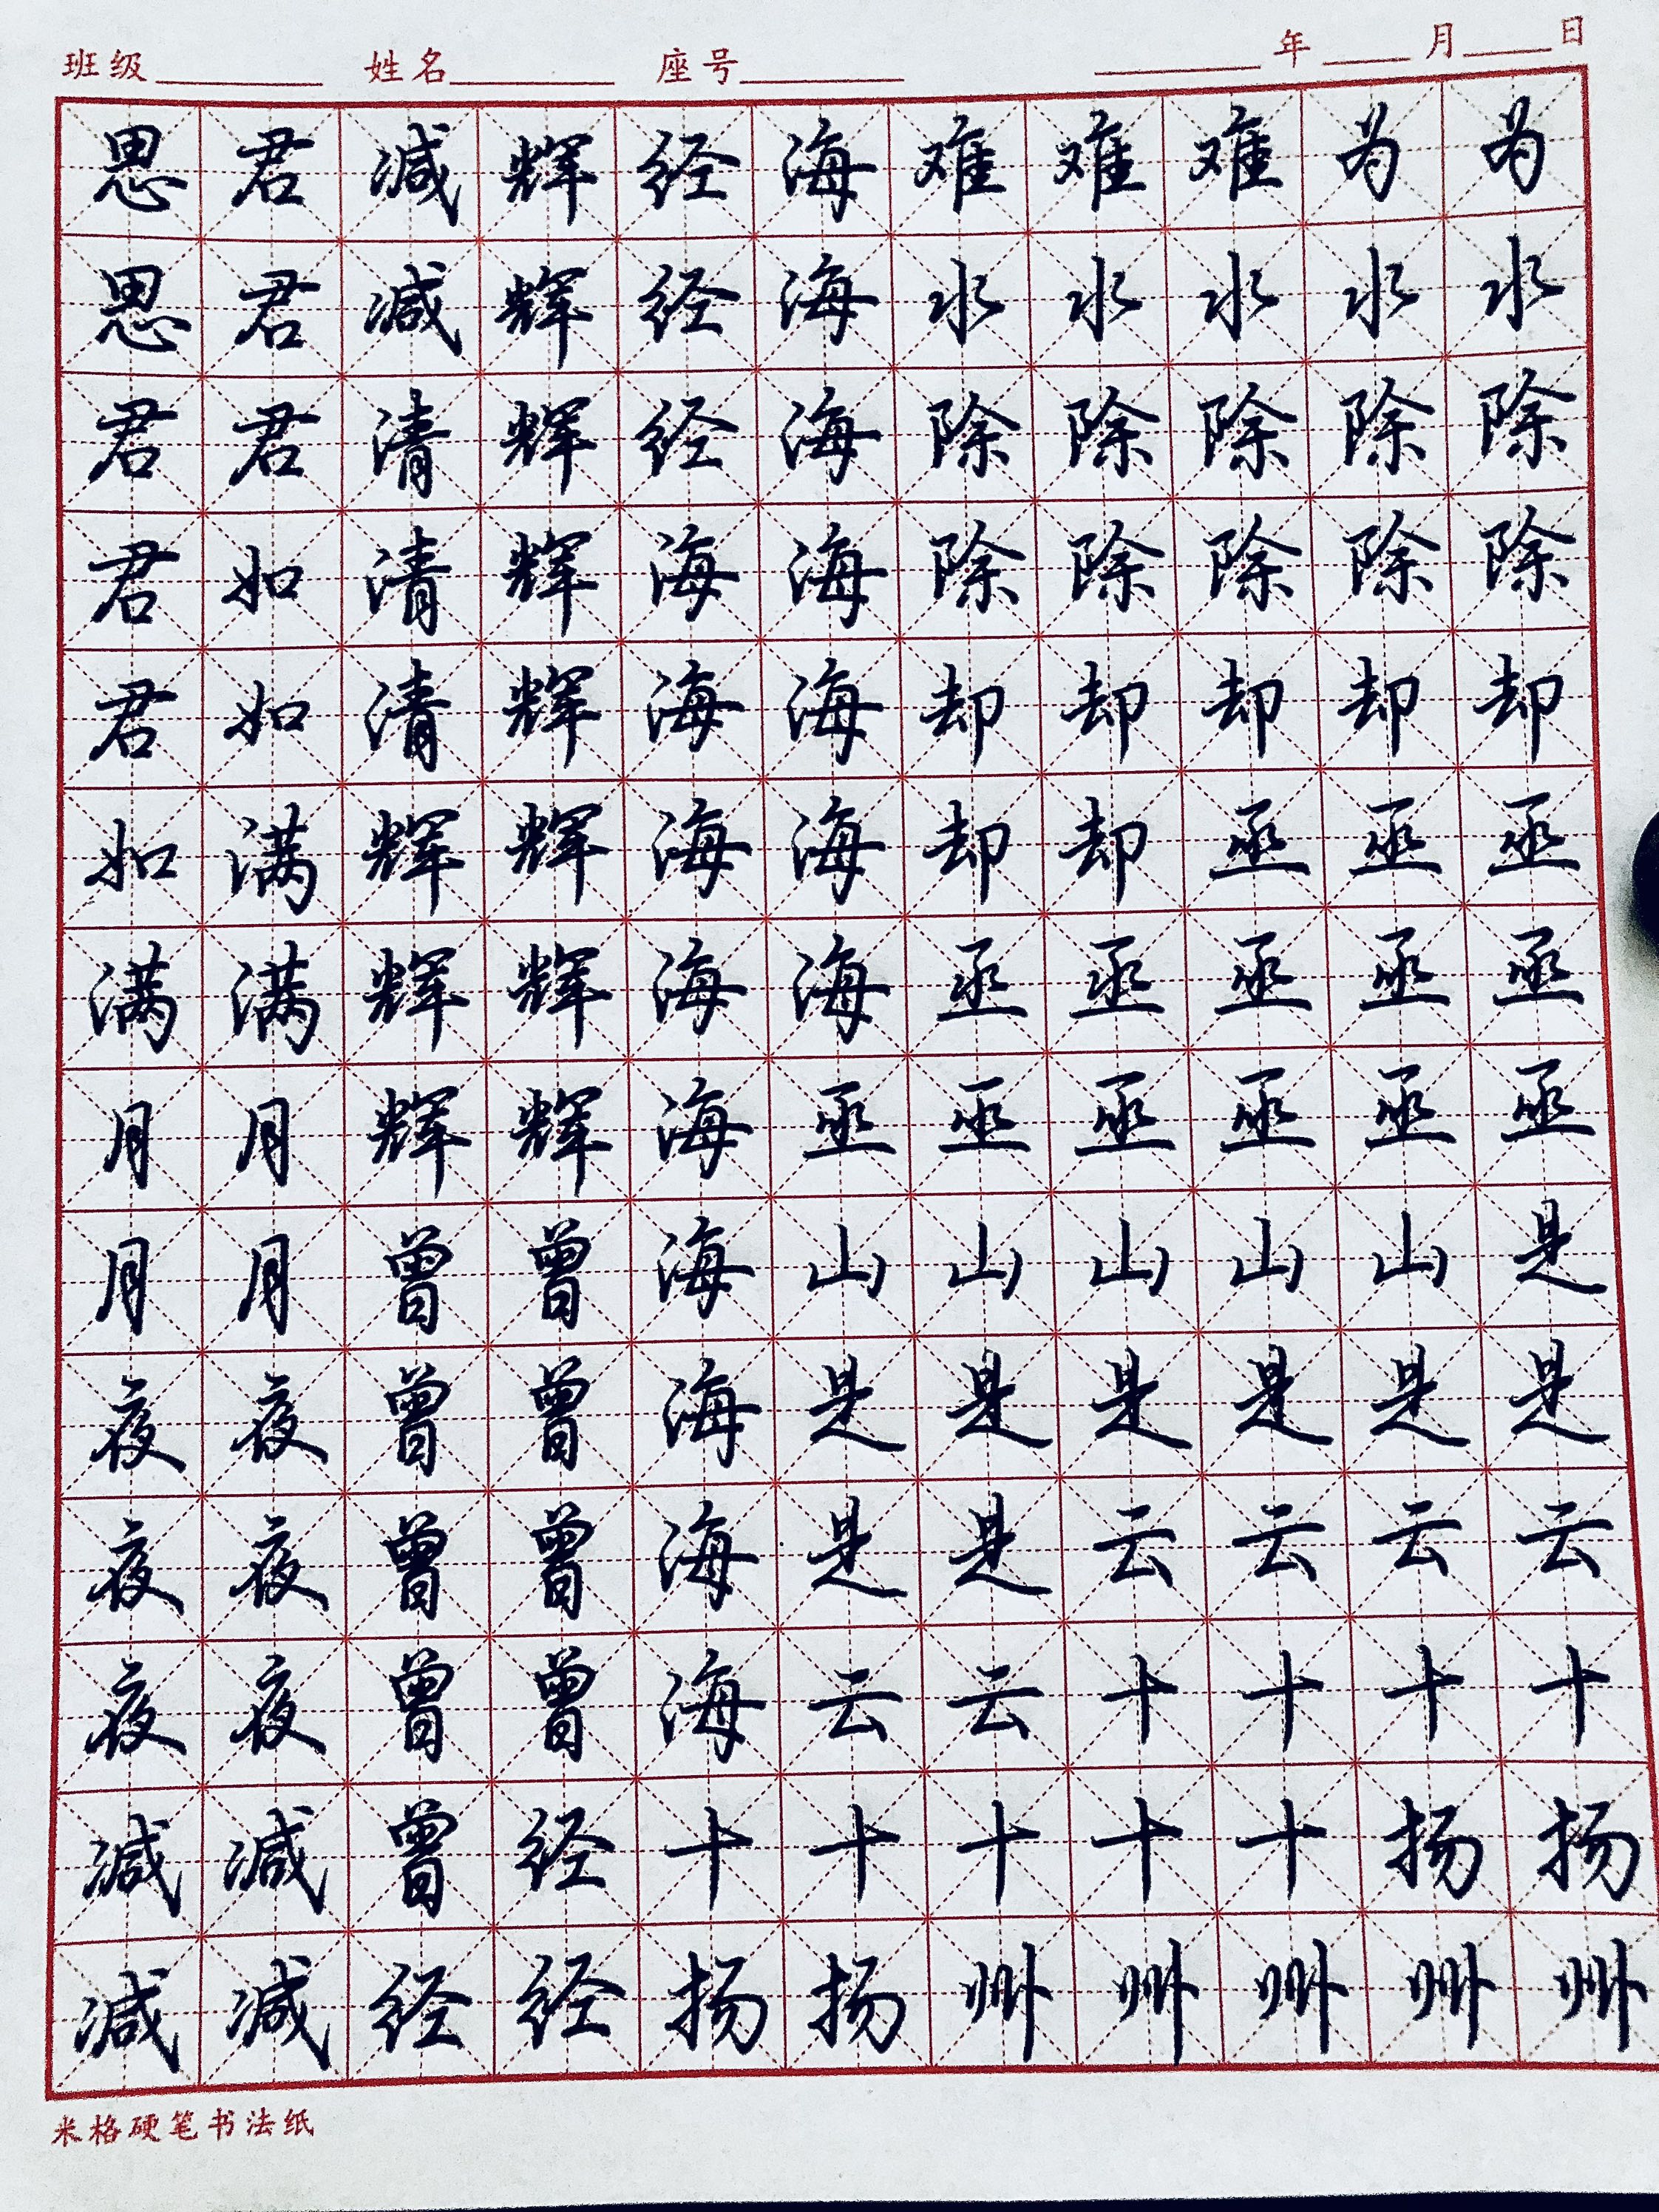 班级 姓名 座号 年 月 日
思君减辉经海难难难为为
思君减辉经海水水水水水
君君清辉经海除除除除除
君如清辉海海除除除除除
君如清辉海海却却却却却
如满辉辉海海却却巫巫巫
满满辉辉海海巫巫巫巫巫
月月辉辉海巫巫巫巫巫巫
月月曾曾海山山山山山是
夜夜曾曾海是是是是是是
夜夜曾曾海是是云云云云
夜夜曾曾海云云十十十十
减减曾经十十十十十扬扬
减减经经扬扬州州州州州
米格硬笔书法纸